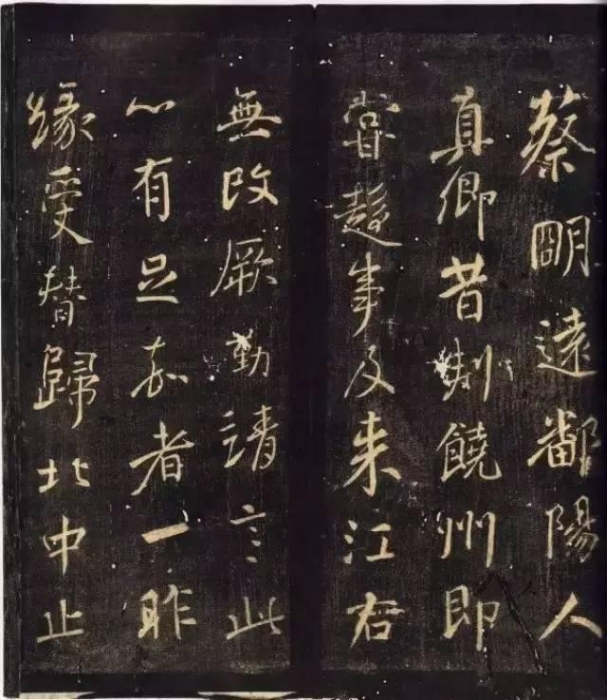 蔡明遠鄱陽人
真卿昔刾饒州即
甞趍事及来江右
無改厥勤靖言此
心有足嘉者一昨
緣受替歸北中止